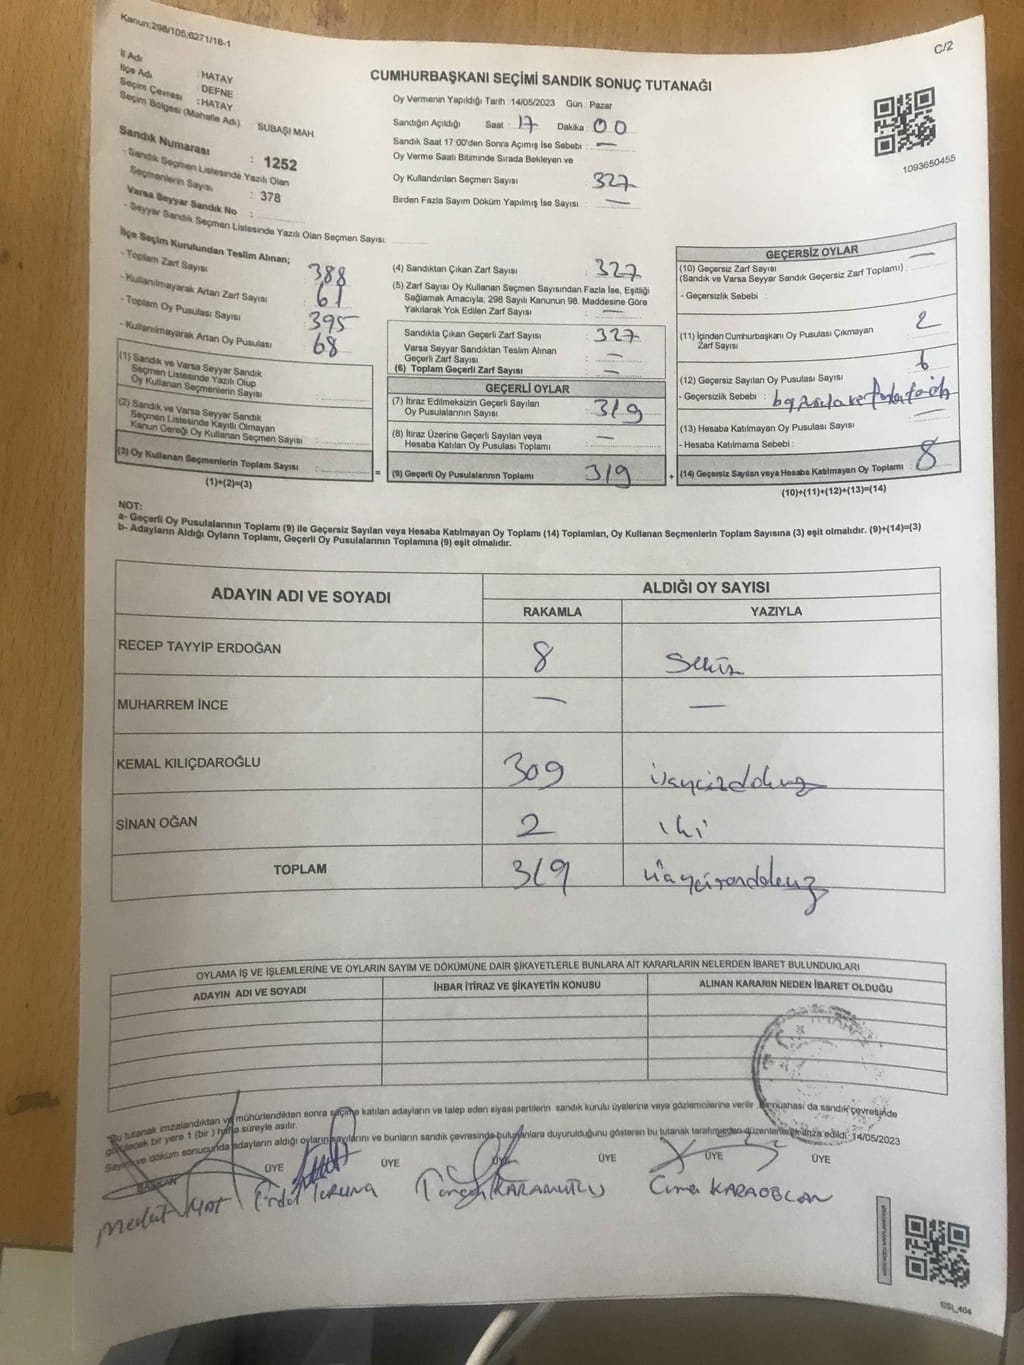 Kanun:298/105;6271/18-1
C/2
CUMHURBAŞKANI SEÇİMİ SANDIK SONUÇ TUTANAĞI
İl Adı : HATAY
İlçe Adı : DEFNE
Seçim Çevresi : HATAY
Seçim Bölgesi (Mahalle Adı) SUBAŞI MAH.
Sandık Numarası : 1252
- Sandık Seçmen Listesinde Yazılı Olan
Seçmenlerin Sayısı : 378
Varsa Seyyar Sandık No :
- Seyyar Sandık Seçmen Listesinde Yazılı Olan Seçmen Sayısı
Oy Vermenin Yapıldığı Tarih : 14/05/2023 Gün : Pazar
Sandığın Açıldığı Saat : 17 Dakika 00
Sandık Saat 17:00'den Sonra Açımış İse Sebebi : —
Oy Verme Saati Bitiminde Sırada Bekleyen ve
Oy Kullandırılan Seçmen Sayısı 327
Birden Fazla Sayım Döküm Yapılmış İse Sayısı : —
1093650455
İlçe Seçim Kurulundan Teslim Alınan;
- Toplam Zarf Sayısı 388
- Kullanılmayarak Artan Zarf Sayısı 61
- Toplam Oy Pusulası Sayısı 395
- Kullanılmayarak Artan Oy Pusulası 68
(1) Sandık ve Varsa Seyyar Sandık
Seçmen Listesinde Yazılı Olup
Oy Kullanan Seçmenlerin Sayısı :
(2) Sandık ve Varsa Seyyar Sandık
Seçmen Listesinde Kayıtlı Olmayan
Kanun Gereği Oy Kullanan Seçmen Sayısı :
(3) Oy Kullanan Seçmenlerin Toplam Sayısı :
(1)+(2)=(3)
(4) Sandıktan Çıkan Zarf Sayısı : 327
(5) Zarf Sayısı Oy Kullanan Seçmen Sayısından Fazla İse, Eşitliği
Sağlamak Amacıyla; 298 Sayılı Kanunun 98. Maddesine Göre
Yakılarak Yok Edilen Zarf Sayısı : —
Sandıkta Çıkan Geçerli Zarf Sayısı : 327
Varsa Seyyar Sandıktan Teslim Alınan
Geçerli Zarf Sayısı : —
(6) Toplam Geçerli Zarf Sayısı : —
GEÇERLİ OYLAR
(7) İtiraz Edilmeksizin Geçerli Sayılan
Oy Pusulalarının Sayısı : 319
(8) İtiraz Üzerine Geçerli Sayılan veya
Hesaba Katılan Oy Pusulası Toplamı : —
= (9) Geçerli Oy Pusulalarının Toplamı : 319
GEÇERSİZ OYLAR
(10) Geçersiz Zarf Sayısı
(Sandık ve Varsa Seyyar Sandık Geçersiz Zarf Toplamı) : —
- Geçersizlik Sebebi :
(11) İçinden Cumhurbaşkanı Oy Pusulası Çıkmayan
Zarf Sayısı 2
(12) Geçersiz Sayılan Oy Pusulası Sayısı 6
- Geçersizlik Sebebi :
(13) Hesaba Katılmayan Oy Pusulası Sayısı : —
- Hesaba Katılmama Sebebi :
+ (14) Geçersiz Sayılan veya Hesaba Katılmayan Oy Toplamı : 8
(10)+(11)+(12)+(13)=(14)
NOT:
a- Geçerli Oy Pusulalarının Toplamı (9) ile Geçersiz Sayılan veya Hesaba Katılmayan Oy Toplamı (14) Toplamları, Oy Kullanan Seçmenlerin Toplam Sayısına (3) eşit olmalıdır. (9)+(14)=(3)
b- Adayların Aldığı Oyların Toplamı, Geçerli Oy Pusulalarının Toplamına (9) eşit olmalıdır.
ADAYIN ADI VE SOYADI
ALDIĞI OY SAYISI
RAKAMLA YAZIYLA
RECEP TAYYİP ERDOĞAN 8 Sekiz
MUHARREM İNCE — —
KEMAL KILIÇDAROĞLU 309 üçyüzdokuz
SİNAN OĞAN 2 iki
TOPLAM 319 üçyüzondokuz
OYLAMA İŞ VE İŞLEMLERİNE VE OYLARIN SAYIM VE DÖKÜMÜNE DAİR ŞİKAYETLERLE BUNLARA AİT KARARLARIN NELERDEN İBARET BULUNDUKLARI
ADAYIN ADI VE SOYADI İHBAR İTİRAZ VE ŞİKAYETİN KONUSU ALINAN KARARIN NEDEN İBARET OLDUĞU
"Bu tutanak imzalandıktan ve mühürlendikten sonra seçime katılan adayların ve talep eden siyasi partilerin sandık kurulu üyelerine veya gözlemcilerine verilir. Bir nüshası da sandık çevresinde
görülecek bir yere 1 (bir) hafta süreyle asılır.
Sayım ve döküm sonucunda adayların aldığı oyların sayılarını ve bunların sandık çevresinde bulunanlara duyurulduğunu gösteren bu tutanak tarafımızdan düzenlenerek imza edildi. 14/05/2023
BAŞKAN ÜYE ÜYE ÜYE ÜYE ÜYE ÜYE
KARAMUTLU KARAOĞLAN
SSL_404